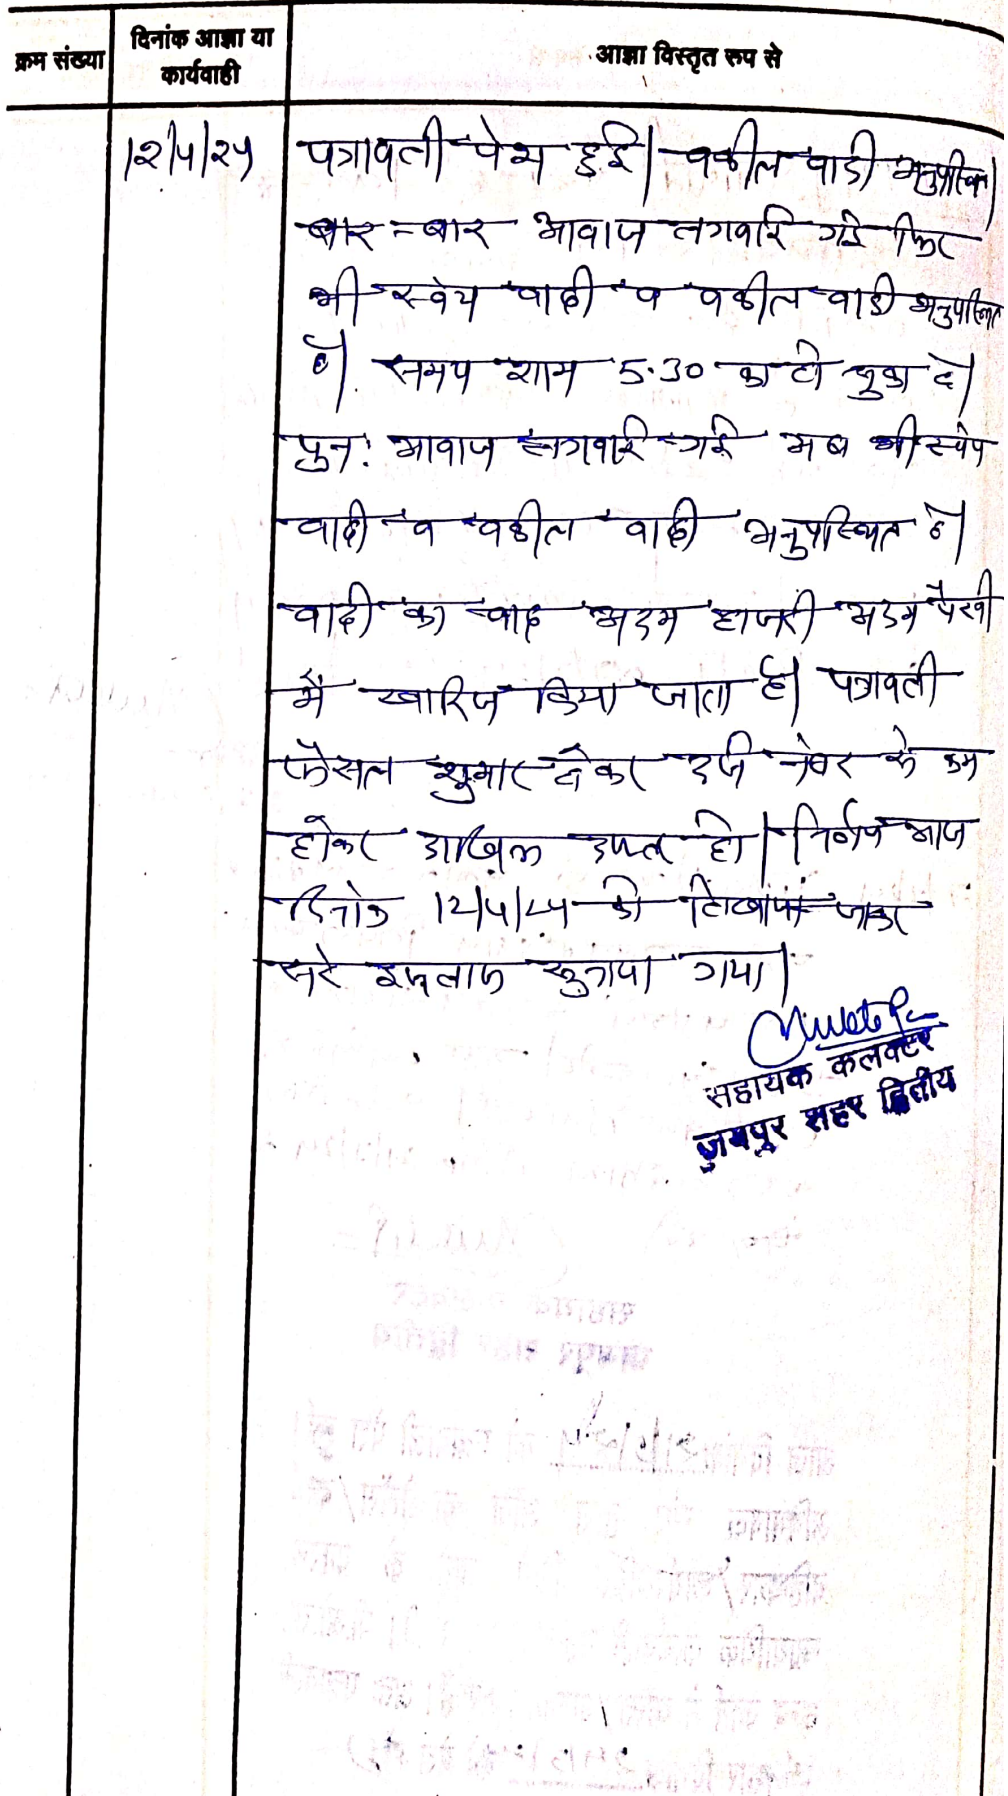 क्रम संख्या
दिनांक आज्ञा या
कार्यवाही
आज्ञा विस्तृत रूप से
12/5/25
पत्रावली पेश हुई। वकील वादी अनुपस्थित।
बार-बार आवाज लगवाई गई फिर
भी स्वंय वादी व वकील वादी अनुपस्थित
है। समय शाम 5.30 का हो चुका है।
पुनः आवाज लगवाई गई अब भी स्वंय
वादी व वकील वादी अनुपस्थित है।
वादी का वाद अदम हाजरी अदम पैरवी
में खारिज किया जाता है। पत्रावली
फैसल शुमार होकर दर्ज नंबर से कम
होकर दाखिल दफ्तर हो। निर्णय आज
दिनांक 12/5/25 को लिखाया जाकर
सरे इजलास सुनाया गया।
सहायक कलक्टर
जयपुर शहर द्वितीय